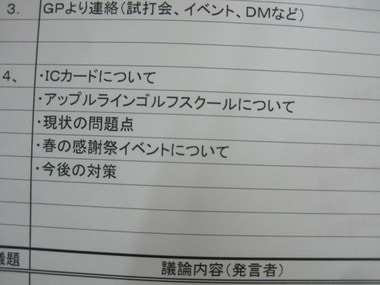 3. GPより連絡(試打会、イベント、DMなど)
4、 ・ICカードについて
・アップルラインゴルフスクールについて
・現状の問題点
・春の感謝祭イベントについて
・今後の対策
議題 議論内容(発言者)